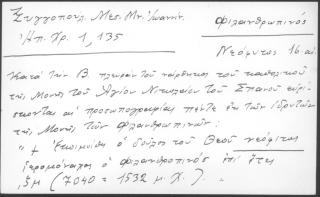 Ξυγγοπουλ. Μεσ. Μν. Ἰωαννίν. Φιλανθρωπινός
Ἠπ. Χρ. 1, 135
Νεόφυτος 16 αἰ.
Κατὰ τὴν Β. πλευρὰν τοῦ νάρθηκος τοῦ καθολικοῦ
τῆς Μονῆς τοῦ Ἁγίου Νικολάου τοῦ Σπανοῦ εὑρί-
σκονται αἱ προσωπογραφίαι πέντε ἐκ τῶν ἱδρυτῶν
τῆς Μονῆς τῶν Φιλανθρωπινῶν:
" + Ἐκοιμήθη ὁ δοῦλος τοῦ Θεοῦ νεόφυτος
ἱερομόναχος ὁ φιλανθροπινός ἐπὶ ἔτει
,ζμ (7040 = 1532 μ. Χ.) "